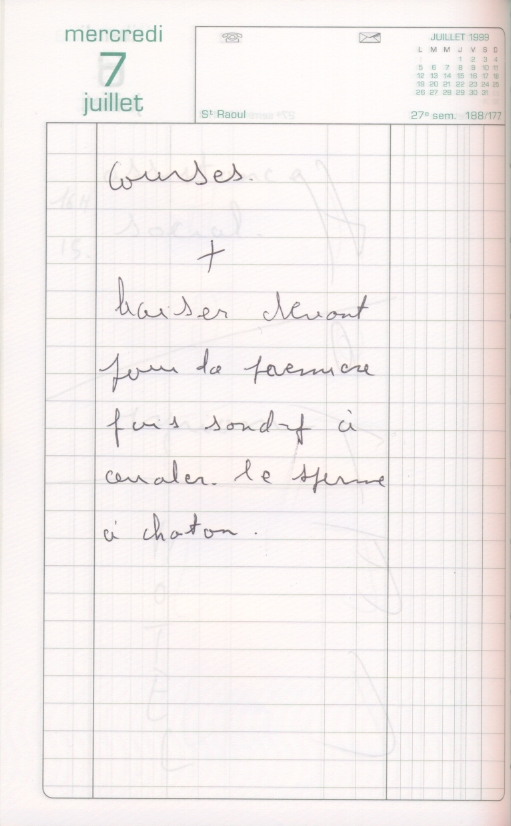 mercredi
7
juillet
JUILLET 1999
L M M J V S D
1 2 3 4
5 6 7 8 9 10 11
12 13 14 15 16 17 18
19 20 21 22 23 24 25
26 27 28 29 30 31
St Raoul
27e sem. 188/177
Courses.
+
baiser devant
pour la première
fois à
avaler. le sperme
à chaton.